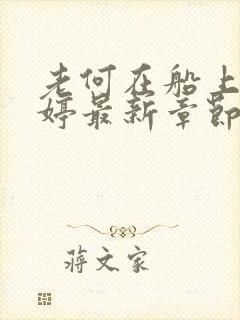 老何在船上
婷最新章节
蒋文家